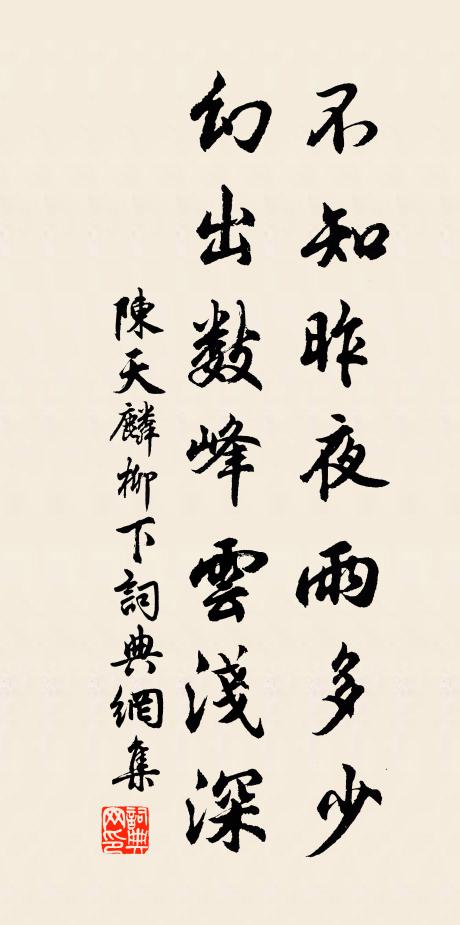 不知昨夜雨多少
幻出數峰雲淺深
陳天麟柳下詞典網集
詞典網印